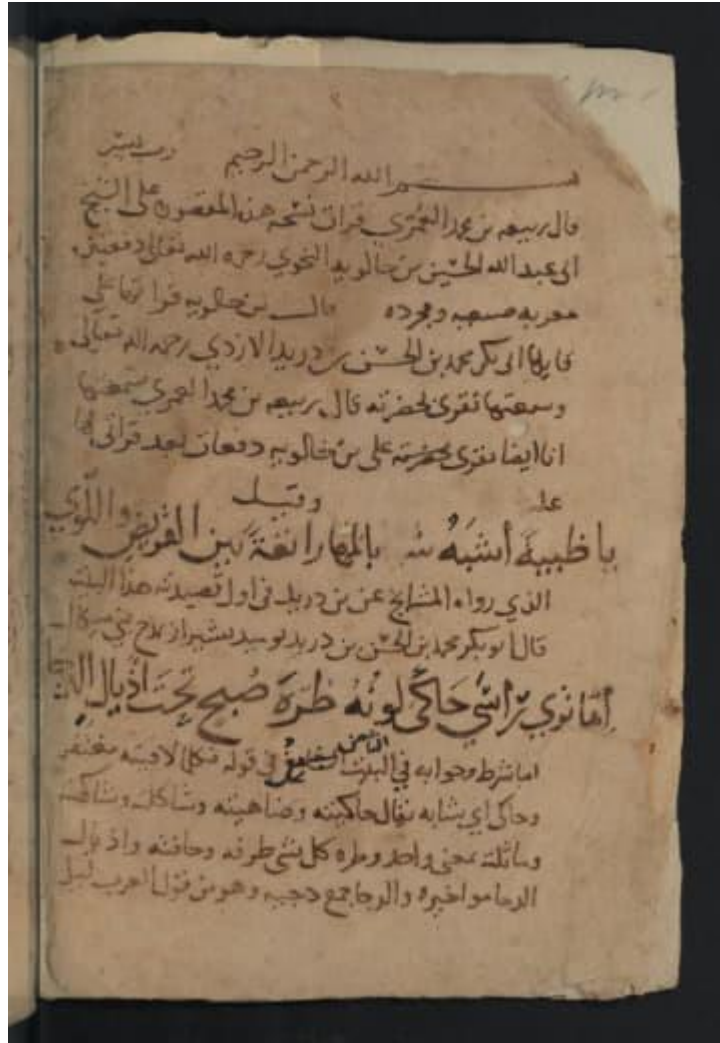 بسم الله الرحمن الرحيم رب يسر
قال ربيعه بن محمد العمري قرات نسخه هذه المقصوره على الشيخ
ابى عبد الله الحسين بن خالويه النحوي رحمه الله تعالى دفعتين
معربه ومجرده قال بن خالويه قراتها على
قايلها ابى بكر محمد بن الحسن بن دريد الازدي رحمه الله تعالى
وسمعتها تقرى بحضرته قال ربيعه بن محمد العمري سمعتها
انا ايضا تقرى بحضرته على بن خالويه دفعات بعد قراتى
عليه وقيل
يا ظبية أشبه شى بالمها رائعة بين الغوير واللوي
الذي رواه المشايخ عن بن دريد فى اول قصيدته هذا البيت
قال ابو بكر محمد بن الحسن بن دريد يمدح بني ميكال
أما تري راسي حاكى لونه طرة صبح تحت أذيال الدجا
اما شرط وجوابه في البيت الثامن في قوله فكلما لاقيته مغتفر
وحاكى اي شابه يقال حاكيته وضاهيته وشاكلته وشاكهته
وماثلته بمعنى واحد وطره كل شى طرفه وحافته واذيال
الدجا مواخيره والدجا جمع دجيه وهو من قول العرب ليل